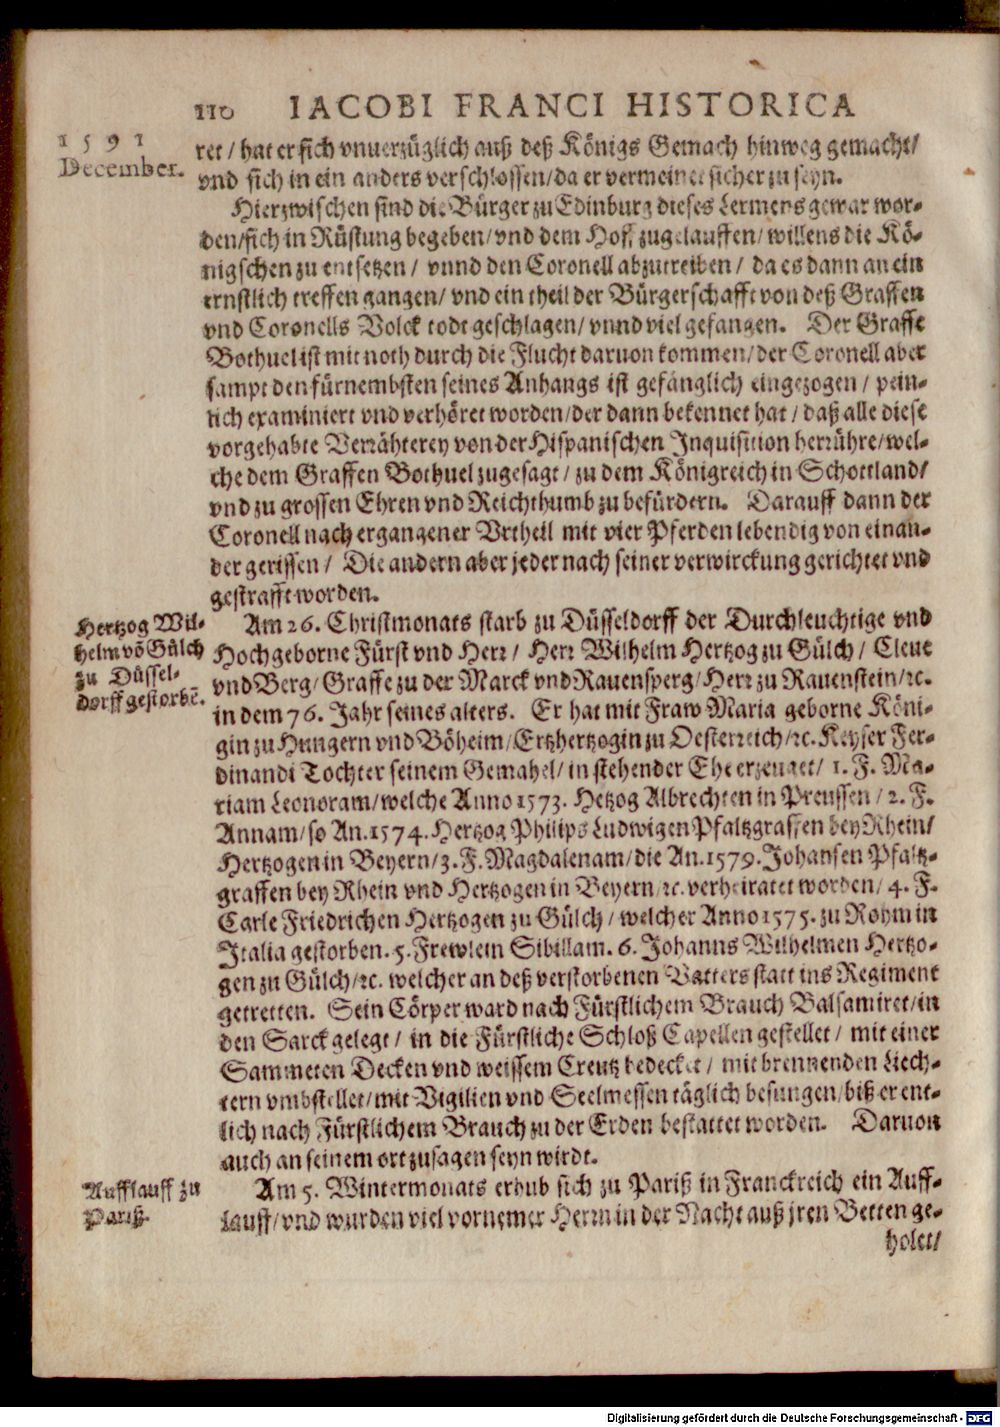 110 IACOBI FRANCI HISTORICA
1591
December.
ret / hat er sich vnuerzüglich auß deß Königs Gemach hinweg gemacht /
vnd sich in ein anders verschlossen / da er vermeinet sicher zu seyn.
Hierzwischen sind die Bürger zu Edinburg dieses Lermens gewar wor-
den / sich in Rüstung begeben / vnd dem Hof zugelauffen / willens die Kö-
nigschen zu entsetzen / vnnd den Coronell abzutreiben / da es dann an ein
ernstlich treffen gangen / vnd ein theil der Bürgerschafft von deß Graffen
vnd Coronells Volck todt geschlagen / vnnd viel gefangen. Der Graffe
Bothuel ist mit noth durch die Flucht daruon kommen / der Coronell aber
sampt den fürnembsten seines Anhangs ist gefänglich eingezogen / pein-
lich examiniert vnd verhöret worden / der dann bekennet hat / daß alle diese
vorgehabte Verrähterey von der Hispanischen Inquisition herrühre / wel-
che dem Graffen Bothuel zugesagt / zu dem Königreich in Schottland /
vnd zu grossen Ehren vnd Reichthumb zu befürdern. Darauff dann der
Coronell nach ergangener Vrtheil mit vier Pferden lebendig von einan-
der gerissen / Die andern aber jeder nach seiner verwirckung gerichtet vnd
gestrafft worden.
Hertzog Wil-
helm võ Gülch
zu Düssel-
dorff gestorbẽ.
Am 26. Christmonats starb zu Düsseldorff der Durchleuchtige vnd
Hochgeborne Fürst vnd Herr / Herr Wilhelm Hertzog zu Gülch / Cleue
vnd Berg / Graffe zu der Marck vnd Rauensperg / Herr zu Rauenstein / ꝛc.
in dem 76. Jahr seines alters. Er hat mit Fraw Maria geborne Köni-
gin zu Hungern vnd Böheim / Ertzhertzogin zu Oesterreich / ꝛc. Keyser Fer-
dinandi Tochter seinem Gemahel / in stehender Ehe erzeuget / 1. F. Ma-
riam Leonoram / welche Anno 1573. Hetzog Albrechten in Preussen / 2. F.
Annam / so An. 1574. Hertzog Philips Ludwigen Pfaltzgraffen bey Rhein /
Hertzogen in Beyern / 3. F. Magdalenam / die An. 1579. Johansen Pfaltz-
graffen bey Rhein vnd Hertzogen in Beyern / ꝛc. verheiratet worden / 4. F.
Carle Friedrichen Hertzogen zu Gülch / welcher Anno 1575. zu Rohm in
Italia gestorben. 5. Frewlein Sibillam. 6. Johanns Wilhelmen Hertzo-
gen zu Gülch / ꝛc. welcher an deß verstorbenen Vatters statt ins Regiment
getretten. Sein Cörper ward nach Fürstlichem Brauch Balsamiret / in
den Sarck gelegt / in die Fürstliche Schloß Capellen gestellet / mit einer
Sammeten Decken vnd weissem Creutz bedecket / mit brennenden Liech-
tern vmbstellet / mit Vigilien vnd Seelmessen täglich besungen / biß er ent-
lich nach Fürstlichem Brauch zu der Erden bestattet worden. Daruon
auch an seinem ort zusagen seyn wirdt.
Aufflauff zu
Pariß.
Am 5. Wintermonats erhub sich zu Pariß in Franckreich ein Auff-
lauff / vnd wurden viel vornemer Herrn in der Nacht auß jren Betten ge-
holet /
Digitalisierung gefördert durch die Deutsche Forschungsgemeinschaft - DFG